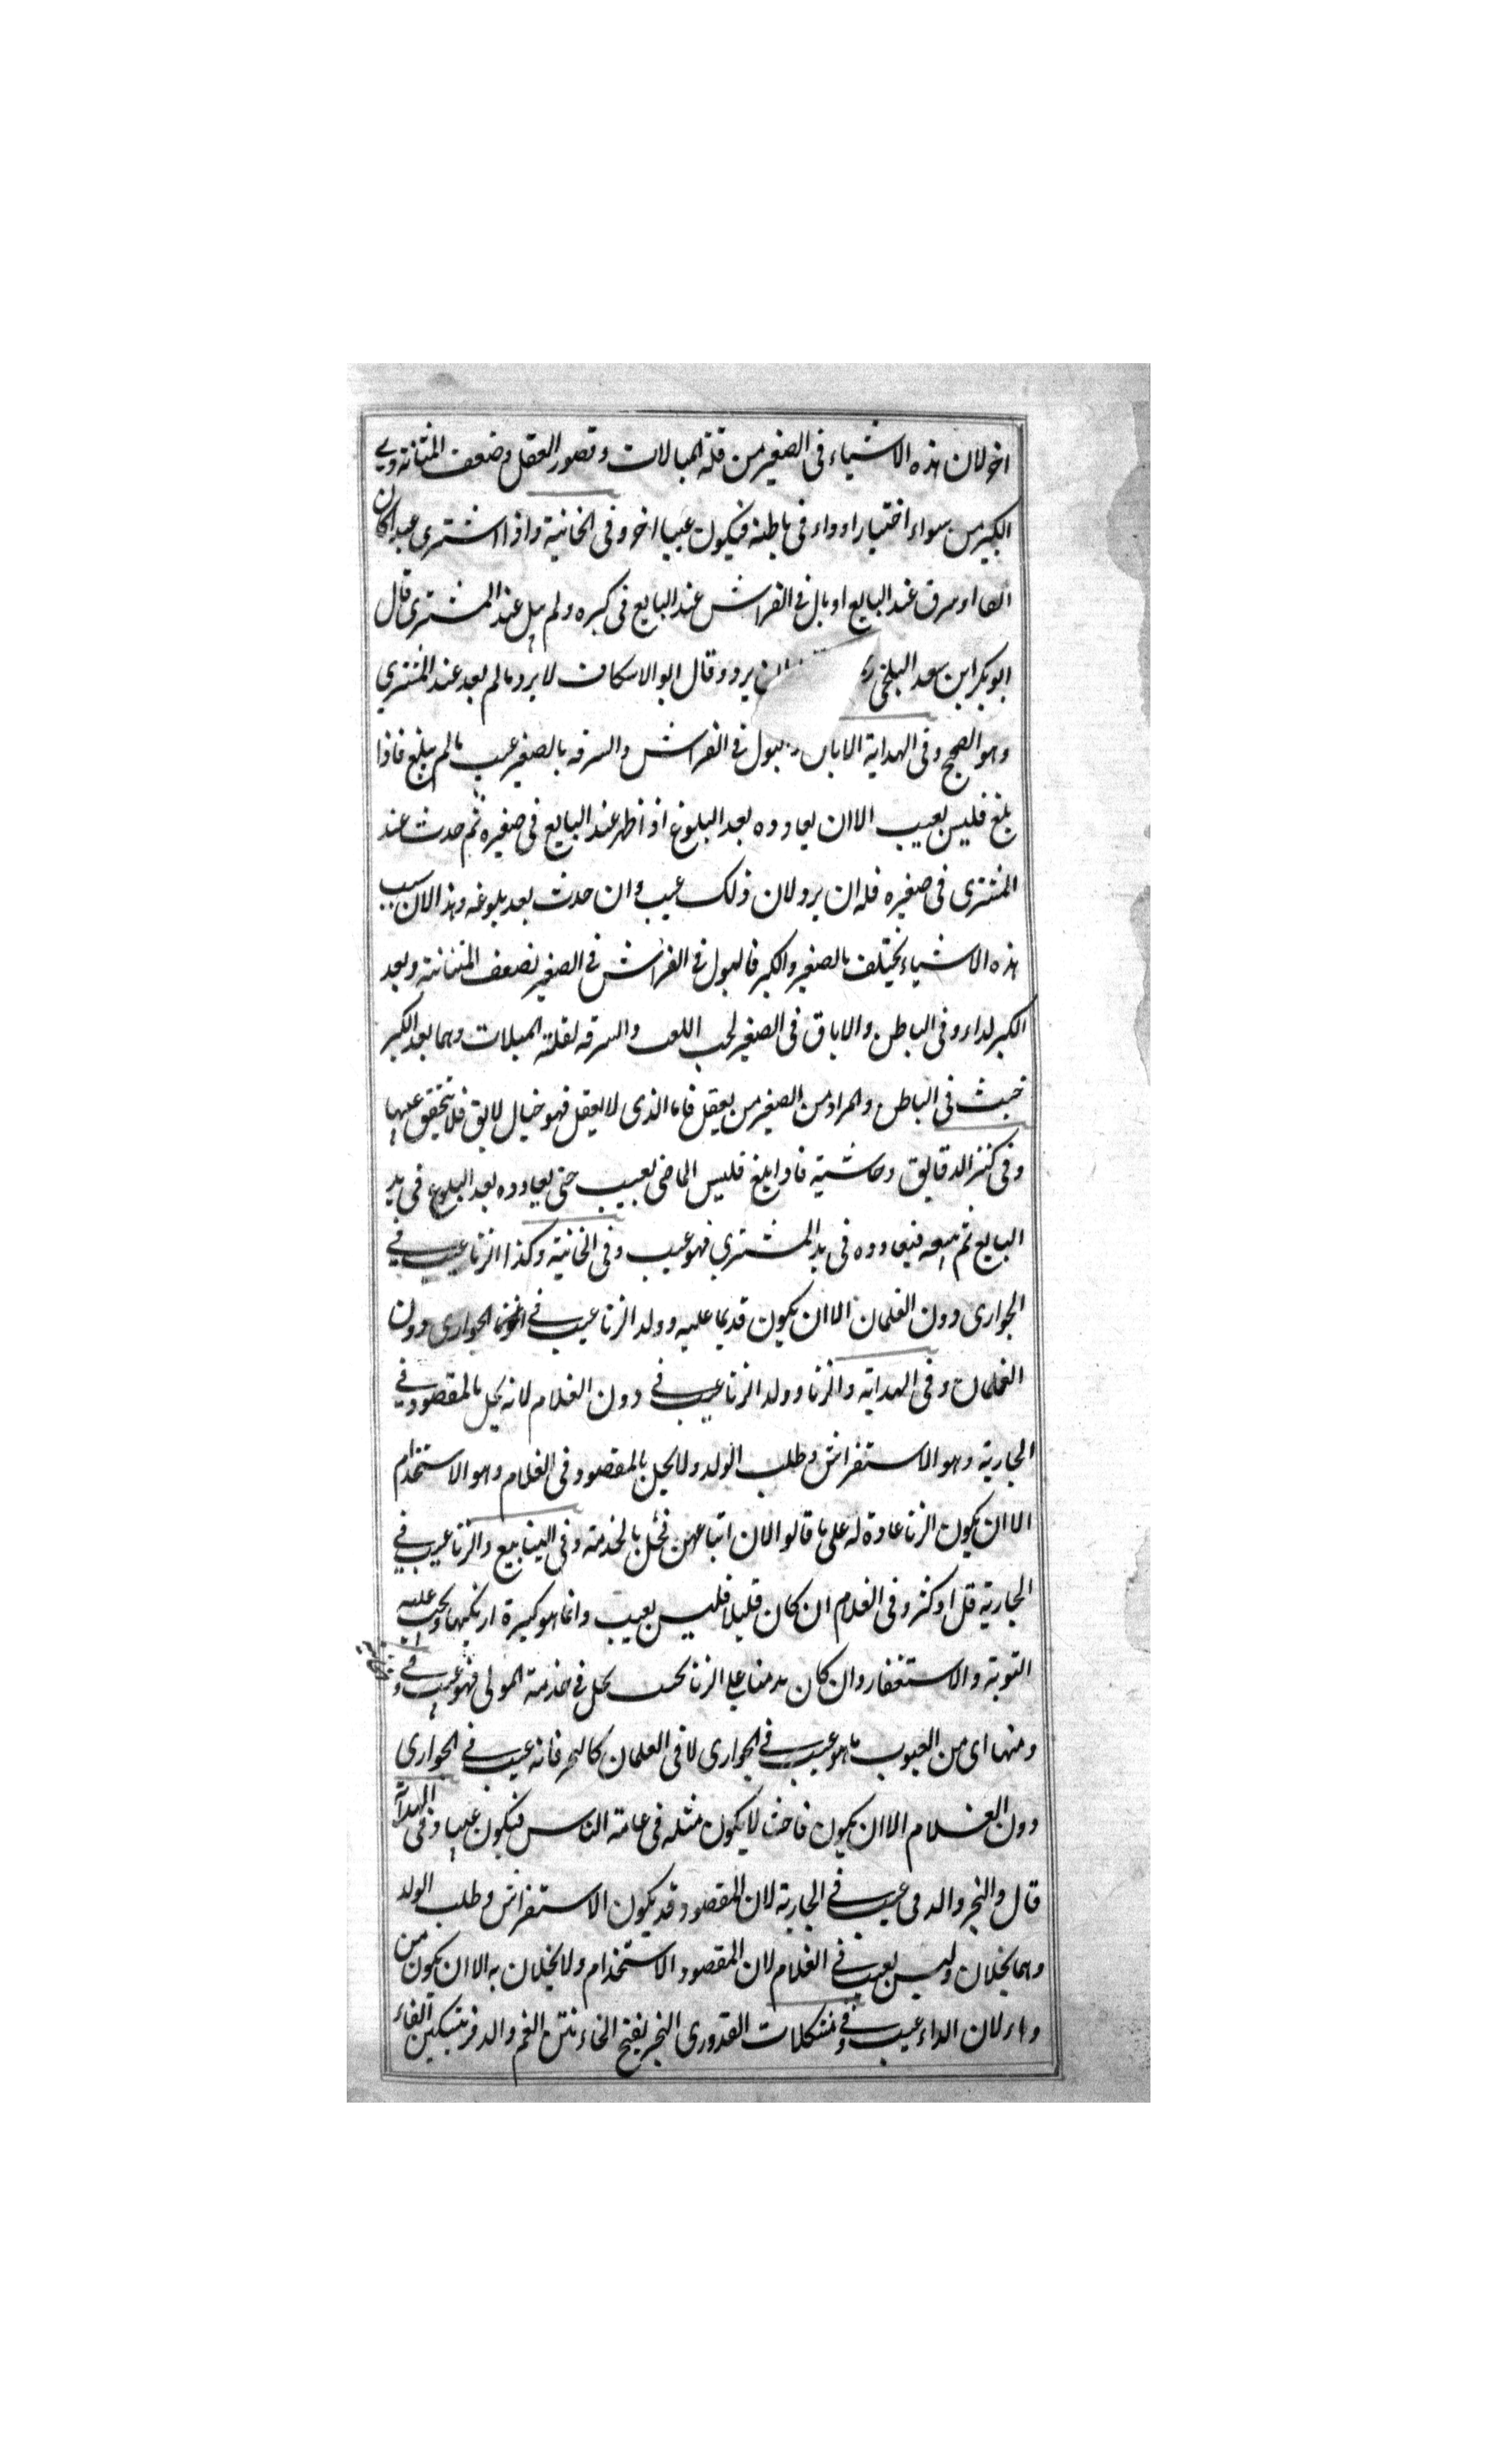 اخر لان هذه الاشياء فى الصغير من قلة المبالات وقصور العقل وضعف المثانة وفى
الكبير من سواء اختيار او داء فى باطنه فيكون عيبا اخر وفى الخانية واذا اشترى عبدا كان
ابقا او سرق عند البايع او بال فى الفراش عند البايع فى كبره ولم يبل عند المشترى قال
ابو بكر ابن سعد البلخى ان يرد وقال ابو الاسكاف لا يرد ما لم يعد عند المشترى
وهو الصحيح وفى الهداية الاباق بول فى الفراش والسرقه بالصغير عيب ما لم يبلغ فاذا
بلغ فليس بعيب الا ان يعاوده بعد البلوغ اذ اظهر عند البايع فى صغيره ثم حدث عند
المشترى فى صغيره فله ان يرد لان ذلك عيب وان حدث بعد بلوغه وهذا لان سبب
هذه الاشياء يختلف بالصغير والكبر فالبول فى الفراش فى الصغير لضعف المثنانة وبعد
الكبر لداء وفى الباطن والاباق فى الصغير لحب اللعب والسرقه لقلة المبلات وهما بعد الكبر
خبث فى الباطن والمراد من الصغير من يعقل فاما الذى لا يعقل فهو ضال لا ابق فلا يتحقق عيبا
وفى كنز الدقايق وحاشيته فاذا بلغ فليس الماضى بعيب حتى يعاوده بعد البلوغ فى يد
البايع ثم بيعه فيعاوده فى يد المشترى فهو عيب وفى الخانية وكذا الزنا عيب فى
الجوارى دون الغلمان الا ان يكون قديما عليه وولد الزنا عيب فى الجوارى دون
الغلمان وفى الهداية والزنا وولد الزنا عيب فى دون الغلام لانه يخل بالمقصود فى
الجارية وهو الاستفراش وطلب الولد ولا يخل بالمقصود فى الغلام وهو الاستخدام
الا ان يكون الزنا عادة له على ما قالوا لان اتباعهن تخل بالخدمة وفى الينابيع والزنا عيب فى
الجارية قل او كثر وفى الغلام ان كان قليلا فليس بعيب وانما هو كبيرة ارتكبها ويجب عليه
التوبة والاستغفار وان كان مدمنا على الزنا بحيث يخل فى خدمة المولى فهو عيب وفى
ومنها اى من العيوب ما هو عيب فى الجوارى لا فى الغلمان كالبخر فانه عيب فى الجوارى
دون الغلام الا ان يكون فاحشا لا يكون مثله فى عامة الناس فيكون عيبا وفى الهداية
قال والبخر والدفر عيب فى الجارية لان المقصود قد يكون الاستفراش وطلب الولد
وهما يخلان وليس بعيب فى الغلام لان المقصود الاستخدام ولا يخلان به الا ان يكون من
داء لان الداء عيب وفى مشكلات القدورى البخر بفتح الخاء نتن الفم والدفر بتسكين الفاء